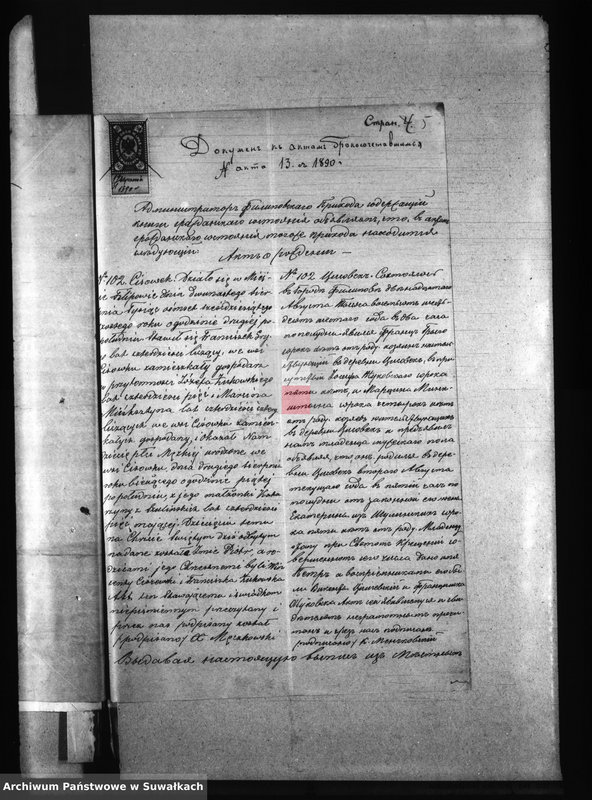 Стран. 4 5
Документ къ актамъ бракосочетавшимся
N акта 13. г. 1890 г.
Администраторъ Филиповскаго Прихода содержащій
книги гражданскаго состоянія объявляетъ, что въ актахъ
гражданскаго состоянія того прихода находится
слѣдующій: Актъ о рожденіи —
№ 102 Cisowek. Działo się w Mieś-
cie Filipowie dnia dwunastego sier-
pnia tysiąc ośmset sześćdziesiątego
szóstego roku o godzinie drugiej po
południu stawił się Franciszek
lat czterdzieści liczący, we wsi
Cisowku zamieszkały gospodarz
w przytomności Józefa Żukowskiego
lat czterdzieści pięć i Marcina
lat czterdzieści cztery
liczących we wsi Cisowku zamiesz-
kałych gospodarzy, i okazał Nam
dziecię płci Męzkiej urodzone we
wsi Cisowku, dnia drugiego sierpnia
roku bieżącego o godzinie piątej
popołudniu, z jego małżonki Kata-
rzyny z lat czterdzieści
pięć mającej. Dziecięciu temu
na Chrzcie Świętym dziś odbytym
nadane zostało imie Piotr, a ro-
dzicami jego Chrzestnemi byli
i Franciszka Żukowska
Akt ten stawającemu i świadkom
niepiśmiennym przeczytany i
przez nas podpisany został
(podpisano) X. Męczkowski
№ 102 Цисовекъ. Состоялось
въ городѣ Филиповѣ двѣнадцатаго
Августа тысяча восемьсотъ шесть-
десятъ шестаго года въ два часа
пополудни явился Францъ
сорокъ лѣтъ отъ роду, хозяинъ житель-
ствующій въ деревнѣ Цисовекъ, въ при-
сутствіи Іосифа Жуковскаго сорока
пяти лѣтъ, и Мартина
сорока четырехъ лѣтъ
отъ роду, хозяевъ жительствующихъ
въ деревнѣ Цисовекъ и предъявилъ
намъ младенца мужескаго пола
объявляя, что онъ родился въ дерев-
нѣ Цисовекъ втораго Августа
текущаго года въ пятый часъ по-
полудни отъ законной его жены
Екатерины изъ соро-
ка пяти лѣтъ отъ роду. Младенцу
этому при Святомъ Крещеніи со-
вершенномъ сего числа дано имя
Петръ, а воспріемниками его бы-
ли и Франциска
Жуковска. Актъ сей объявляющему и сви-
дѣтелямъ неграмотнымъ прочи-
танъ и чрезъ насъ подписанъ
(подписано) К. Менчковскій
Выдавая настоящую выпись изъ
Archiwum Państwowe w Suwałkach